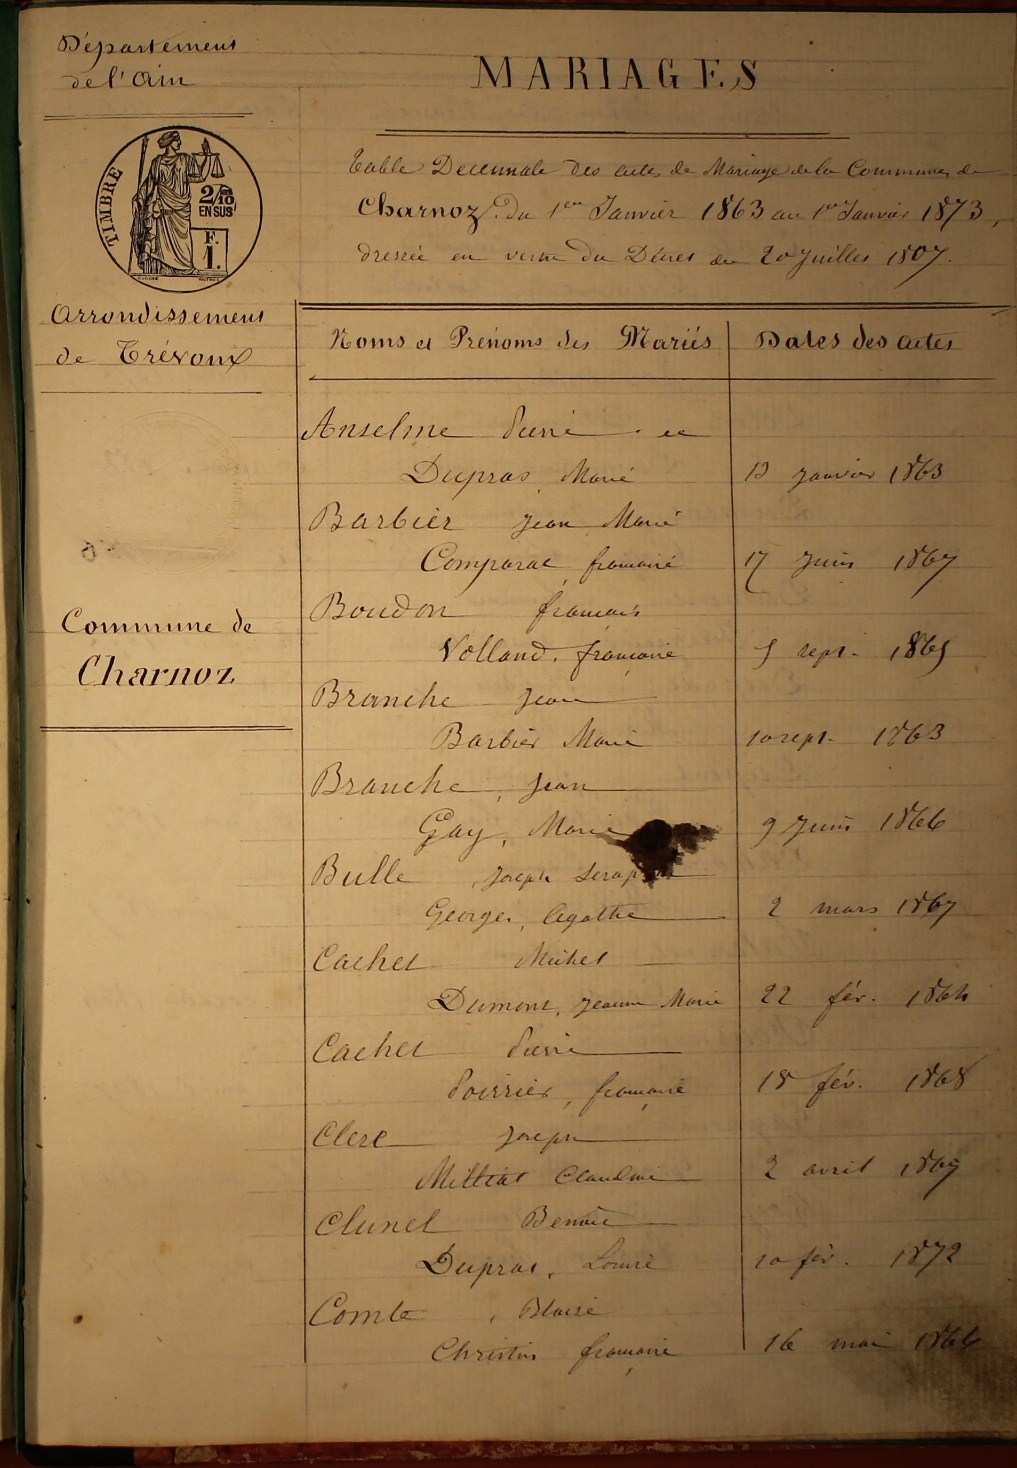 Département
de l'Ain
MARIAGES
TIMBRE
2/10
EN SUS
F.
1.
Table Décennale des actes de Mariage de la Commune de
Charnoz, du 1er Janvier 1863 au 1er Janvier 1873,
dressée en vertu du Décret du 20 Juillet 1807.
Arrondissement
de Trévoux
Commune de
Charnoz
Noms et Prénoms des Mariés
Dates des actes
Anselme Pierre et
Dupras, Marie 13 Janvier 1863
Barbier Jean Marie
Comparat, françoise 17 Juin 1867
Boudon françois
Volland, françoise 5 sept. 1865
Branche Jean
Barbier Marie 10 sept. 1863
Branche, Jean
Gay, Marie 9 Juin 1866
Bulle, Joseph
George, Agathe 2 mars 1867
Cachet Michel
Dumont, Jeanne Marie 22 fév. 1864
Cachet Pierre
Poirrier, françoise 18 fév. 1868
Clerc Joseph
Milliat Claudine 2 avril
Clunet Benoit
Dupras, Louise 10 fév. 1872
Comte, Blaise
Christin françoise 16 mai 1866